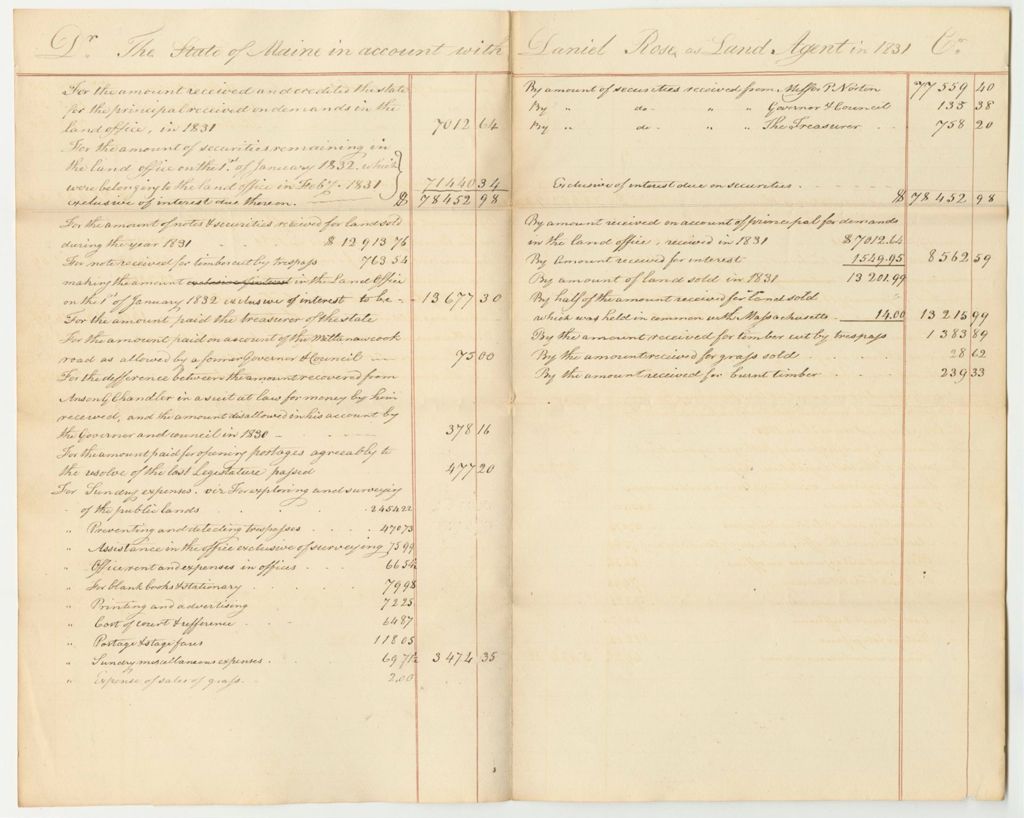 Dr The State of Maine in account with Daniel Rose, as Land Agent in 1831 Cr.
For the amount received and credited the state
for the principal received on demands in the
land office, in 1831 7012 64
For the amount of securities remaining in
the land office on the 1st of January 1832. which
were belonging to the land office in Feby. 1831 71440 34
exclusive of interest due thereon. $ 78452 98
For the amount of notes & securities received for land sold
during the year 1831 $ 12 913 76
For note received for timber cut by trespass 763 54
making the amount exclusive of interest in the Land Office
on the 1st of January 1832 exclusive of interest to be - 13677 30
For the amount paid the treasurer of the state
For the amount paid on account of the Mattanawcook
road as allowed by a former Governor & Council 75 00
For the difference between the amount recovered from
Anson G Chandler in a suit at law for money by him
received, and the amount disallowed in his account by
the Governor and council in 1830 - 378 16
For the amount paid for opening portages agreeably to
the resolve of the last Legislature passed 477 20
For Sundry expenses. viz For exploring and surveying
of the public lands 2454 22
" Preventing and detecting trespasses 470 73
" Assistance in the office exclusive of surveying 75 99
" Office rent and expenses in offices 66 54
" For blank books & stationary 79 98
" Printing and advertising 72 25
" Cost of court & refference 64 87
" Postage & stage fares 118 05
" Sundry miscellaneous expenses. 69 71½ 3474 35
" Expense of sales of grass. 2.00
By amount of securities received from Messrs P. Norton 77559 40
By " do - " " Governor & Council 135 38
By " do - " " The Treasurer 758 20
Exclusive of interest due on securities.
$ 78452 98
By amount received on account of principal for demands
in the land office, received in 1831 $7012.64
By Amount received for interest 1549.95 8562 59
By amount of land sold in 1831 13201.99
By half of the amount received for land sold
which was held in common with Massachusetts 14.00 13215 99
By the amount received for timber cut by trespass 1383 89
By the amount received for grass sold 28 62
By the amount received for burnt timber 239 33